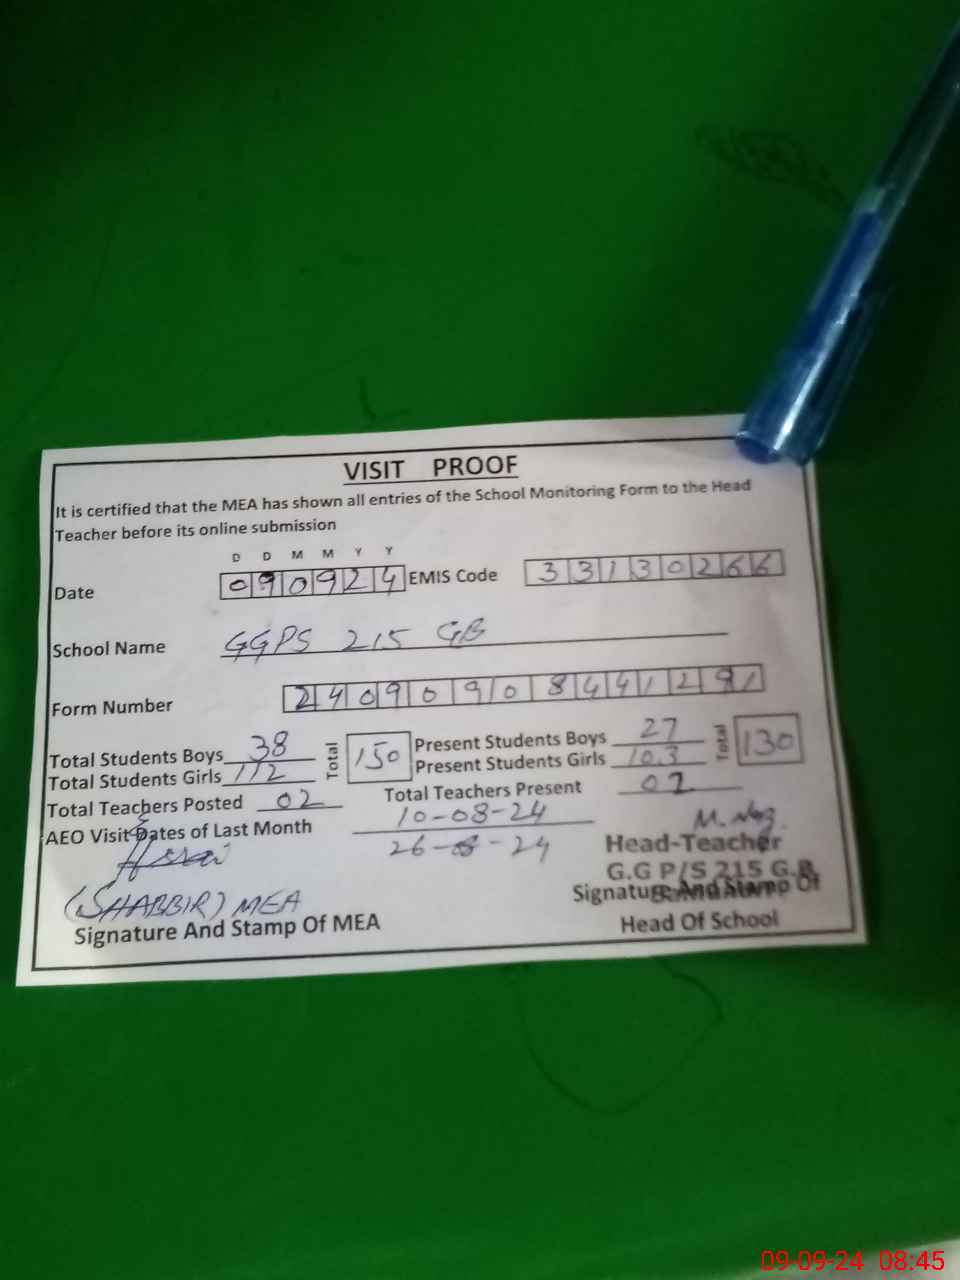 VISIT PROOF
It is certified that the MEA has shown all entries of the School Monitoring Form to the Head
Teacher before its online submission
D D M M Y Y
Date 090924 EMIS Code 33130266
School Name GGPS 215 GB
Form Number
Total Students Boys 38 Total 150 Present Students Boys 27 Total 130
Total Students Girls 112 Present Students Girls 103
Total Teachers Posted 02 Total Teachers Present 02
AEO Visit Dates of Last Month 10-08-24
26-08-24
Head-Teacher
G.G P/S 215 G.B
(SHABBIR) MEA
Signature And Stamp Of MEA
Signature And Stamp Of
Head Of School
09-09-24 08:45